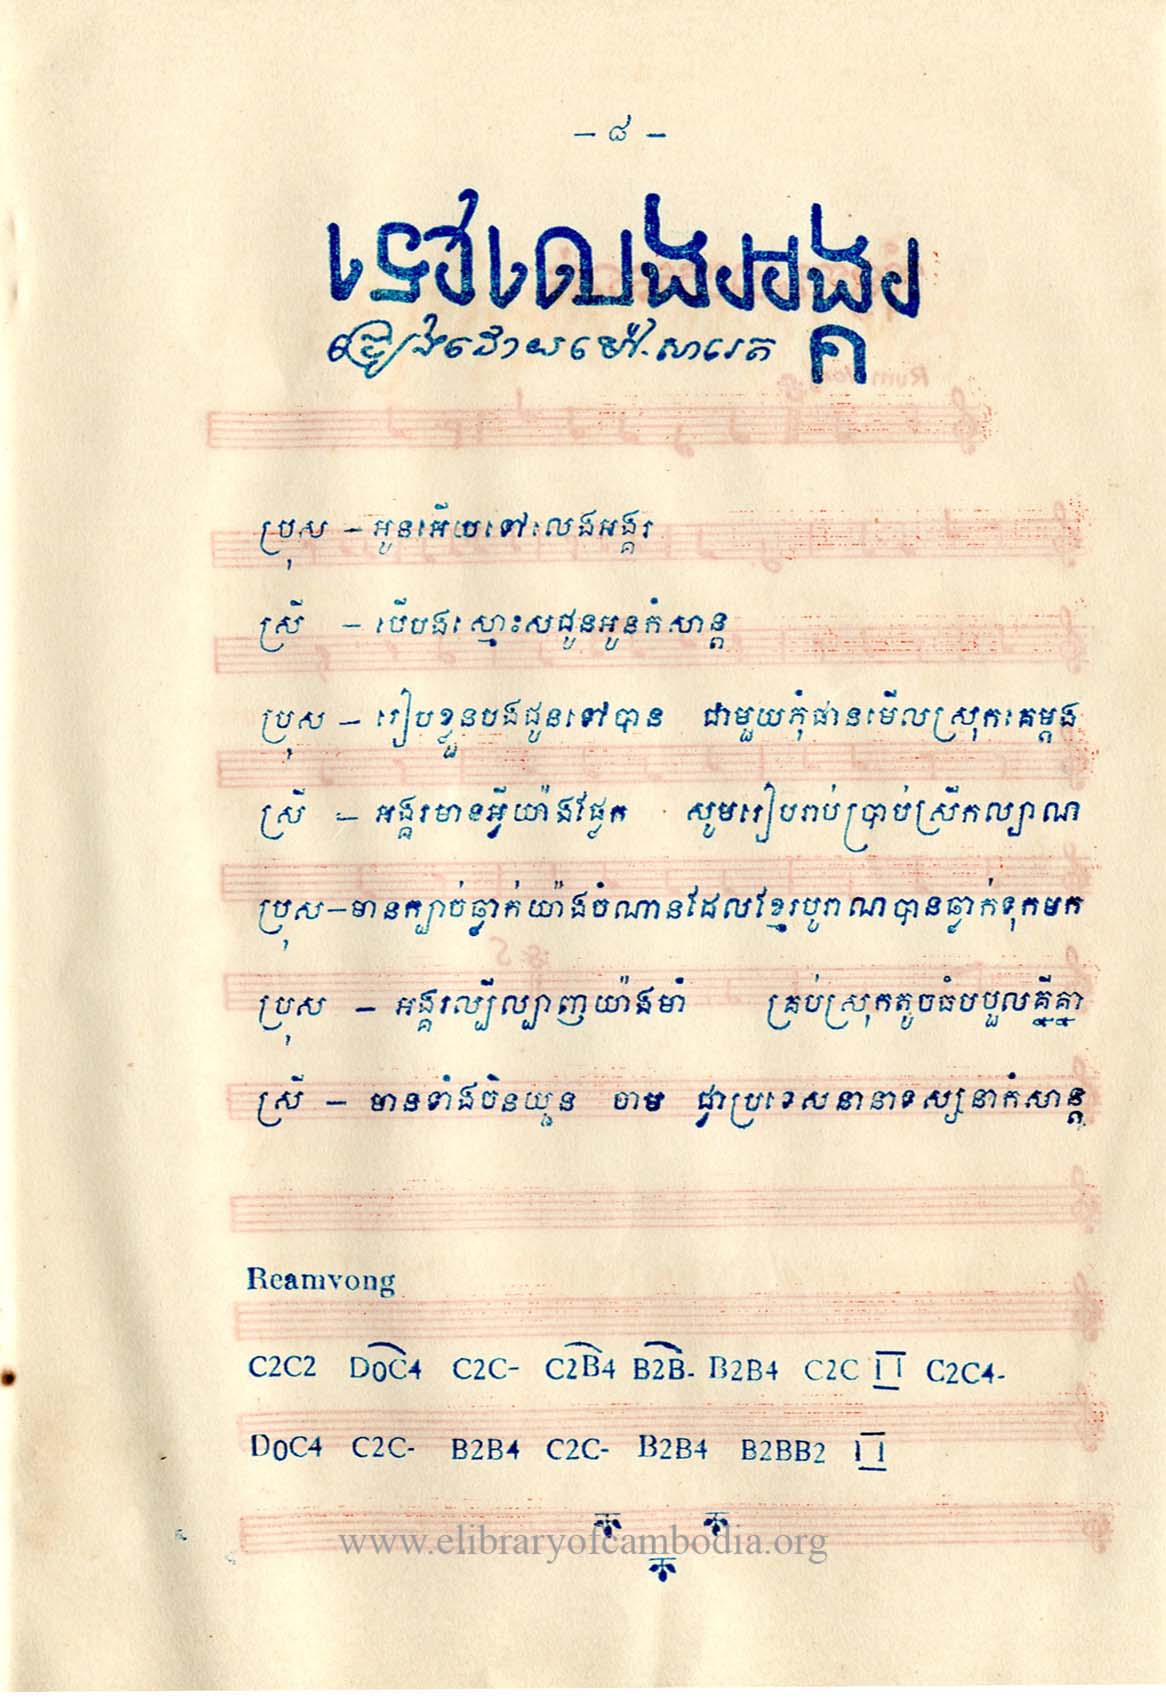 – ៨ –
ទៅលេងអង្គរ
រៀបរៀងដោយ ម៉ៅ-សារេត
ប្រុស – អូនអើយទៅលេងអង្គរ
ស្រី – បើបងស្មោះសជូនអូនកំសាន្ត
ប្រុស – រៀបខ្លួនបងជូនទៅបាន ជាមួយភុំផានមើលស្រុកគេម្តង
ស្រី – អង្គរមានអ្វីយ៉ាងផ្លែក សូមរៀបរាប់ប្រាប់ស្រីកល្យាណ
ប្រុស – មានក្បាច់ធ្លាក់យ៉ាងចំណានដែលខ្មែរបូរាណបានធ្លាក់ទុកមក
ប្រុស – អង្គរល្បីល្បាញយ៉ាងមាំ គ្រប់ស្រុកតូចធំបបួលគ្នីគ្នា
ស្រី – មានទាំងចិនយួន ចាម ជ្វាប្រទេសនានាទស្សនាកំសាន្ត
Reamvong
C2C2 D0C4 C2C- C2B4 B2B- B2B4 C2C C2C4-
D0C4 C2C- B2B4 C2C- B2B4 B2BB2
www.elibraryofcambodia.org